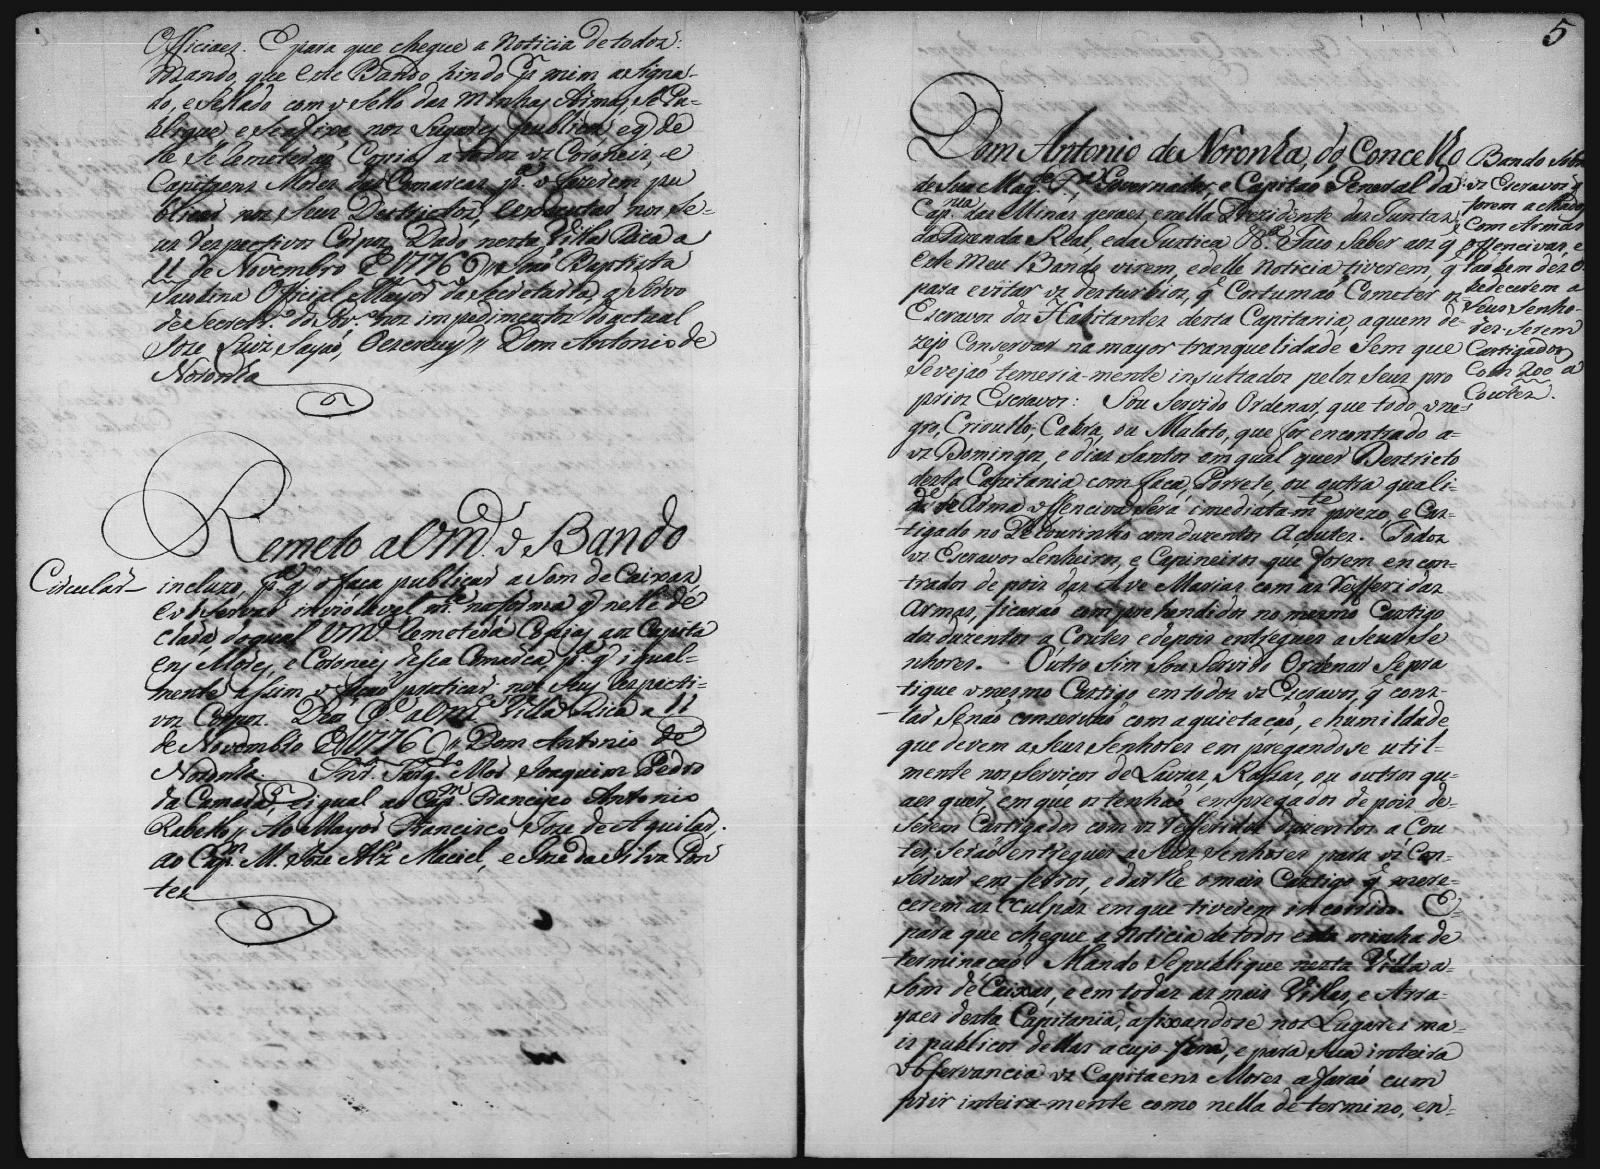 Officiaes. E para que chegue a noticia de todos:
Mando, que este Bando hindo por mim asigna-
do, e Sellado com o Sello das minhas Armas, Se Pu-
blique e Se afixe nos Lugares publicos e q̃ de
lle Se Remeterão Copias a todos os Coroneis, e
Capitaens Mores das Comarcas p.ª o fazerem pu
blicar nos Seus Destrictos, e Registar nos Se-
us Respectivos Corpos. Dado nesta Villa Rica a
11 de Novembro de 1776 // João Baptista
Official Mayor da Secretaria, q̃ Sirvo
de Secretr.º do Gov.º nos impedimentos do actual
Joze Luiz Sayão, O escrevy // Dom Antonio de
Noronha
Circular—
Remeto a Vm.ce o Bando
incluzo, p.ª q̃ o faça publicar a Som de Caixas
e observar inviolavel m.te na forma q̃ nelle de
clara, do qual Vm.ce Remeterá Copias aos Capita
ens Mores, e Coroneis dessa Comarca p.ª q̃ igual-
mente assim o fação praticar nos Seus Respecti-
vos Corpos. Deos G.e a Vm.ce Villa Rica a 11
de Novembro de 1776 // Dom Antonio de
Noronha. Snr. Sarg.to Mor Joaquim Pedro
da Camara, e igual ao Cap.m Francisco Antonio
Rabello, Ao Mayor Francisco Joze de Aguilar,
ao Cap.m M. Joze Alz Maciel, e Joze da Silva Pon
tes
5
Dom Antonio de Noronha, do Concelho
de Sua Mag.e F.ma Governador, e Capitão General da
Cap.nia das Minas geraes, e nella Prezidente das Juntas
da Fazenda Real, e da Justiça &.ª Faço Saber aos q̃
este meu Bando virem, e delle noticia tiverem, q̃
para evitar os desturbios, q̃ Costumão Cometer os
Escravos dos Habitantes desta Capitania, a quem de-
zejo Conservar na mayor tranquelidade Sem que
Se vejão temeria-mente insultados pelos Seus pro
prios Escravos: Sou Servido Ordenar, que todo o ne-
gro, Crioullo, Cabra, ou Mulato, que for encontrado a-
os Domingos, e dias Santos em qual quer Destricto
desta Capitania com faca, Porrete, ou outra quali-
d.e de Arma offenciva Será imediatam.te prezo, e Cas-
tigado no Pelourinho com duzentos Açoutes. Todos
os Escravos Lenheiros, e Capineiros que forem encon-
trados depois das Ave Marias com as Refferidas
Armas, ficarão comprehendidos no mesmo Castigo
dos duzentos açoutes e depois entregues a Seus Se
nhores. Outro Sim Sou Servido Ordenar Se pra
tique o mesmo Castigo em todos os Escravos, q̃ cons-
tar Se não conservão com aquietação, e humildade
que devem a Seus Senhores empregandose util-
mente nos Serviços de Lavras, Rossas, ou outros qu-
aes quer, em que os tenhão empregados depois de-
Serem Castigados com os Refferidos duzentos a Cou
tes, Serão entregues a Seus Senhores para os Con-
servar em ferros, e darlhe o mais Castigo q̃ mere-
cerem as culpas em que tiverem incorrido. E
para que chegue a noticia de todos esta minha de
terminação. Mando Se publique nesta Villa a-
Som de Caixas, e em todas as mais Villas, e Arra-
yaes desta Capitania, afixandose nos Lugares ma-
is publicos dellas a cujo fim, e para Sua inteira
observancia os Capitaens Mores a farão cum
prir inteira-mente como nella determino, en-
Bando Sobre
os Escravos q̃
forem achados
Com Armas
offencivas, e
tão bem dezo
bedecerem a
Seus Senho-
res Serem
Castigados
Com 200 a
Coutes.